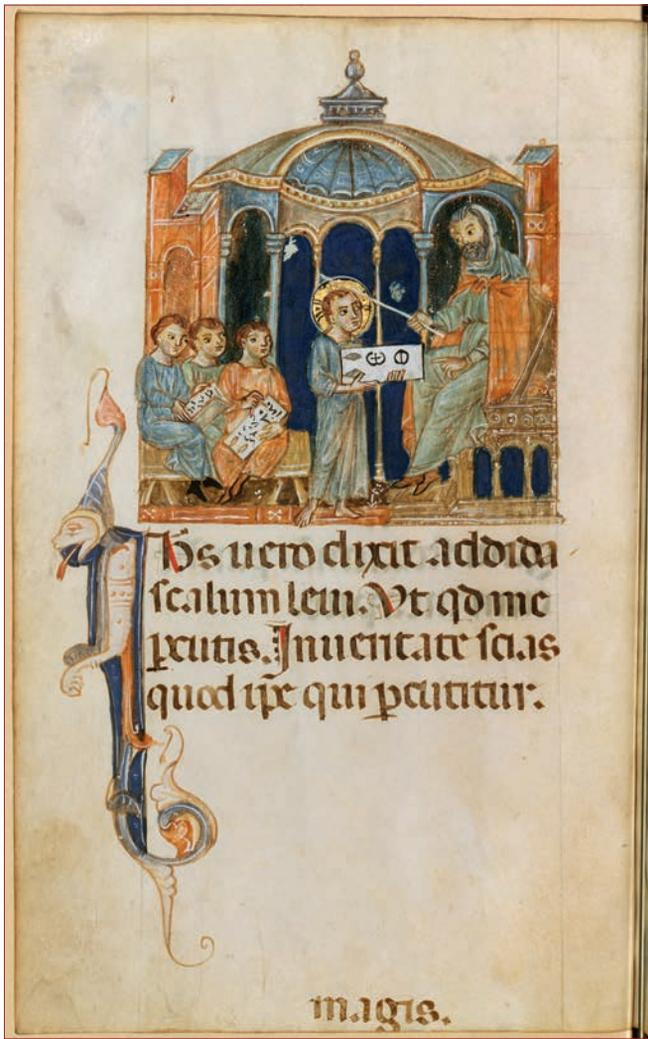 Ihs uero dixit addida
scalum leui. Ut qd me
ꝑcutis. Inueritate scias
quod ip̄e qui ꝑcutitur.
magis.